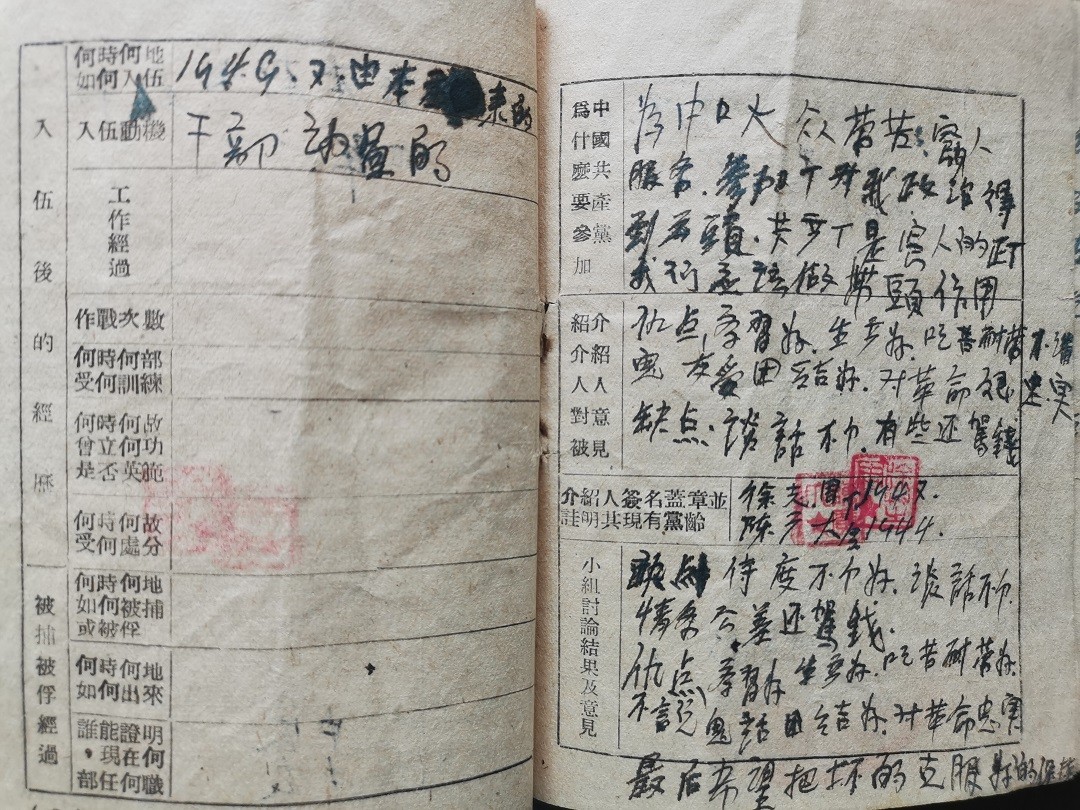 入伍後的經歷
何時何地
如何入伍
1949.2.由本 来的
入伍動機
干部动員的
工作經過
作戰次數
何時何部
受何訓練
何時何故
曾立何功
是否英範
何時何故
受何處分
被捕被俘經過
何時何地
如何被捕
或被俘
何時何地
如何出來
誰能證明
，現在何
部任何職
為什麼要參加
中國共產黨
为中口大众劳苦窮人
服务.参加 我政治得
到 頭.共产丁是窮人的丁
我 做带頭作用
介紹人對被
紹介人意見
优点,学習好.生产好.吃苦耐劳不講
鬼 友爱团結好.对革命很忠実
缺点.談話不 .有些还駕錢
介紹人簽名蓋章並
註明其現有黨齡
徐 1947.
陈 大 1944.
小組討論結果及意見
缺點 待度不 好.談話不
情 公差还駕錢.
优点 学習好 生产好.吃苦耐劳好.
不說鬼話团結好.对革命忠実
最后希望把坏的克服好的保持